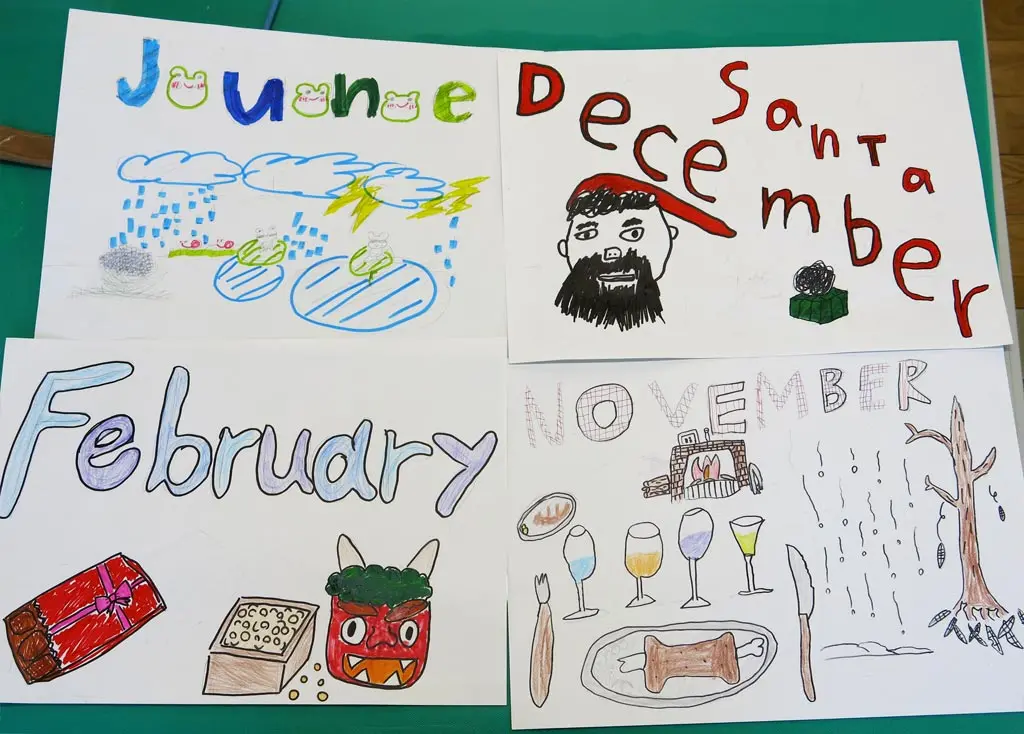 June
December
SanTa
February
NOVEMBER